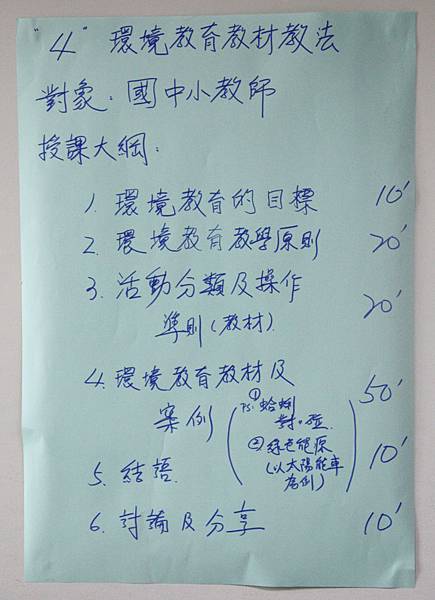 "4" 環境教育教材教法
對象:國中小教師
授課大綱:
1. 環境教育的目標 10'
2. 環境教育教學原則 20'
3. 活動分類及操作
準則(教材) 20'
4. 環境教育教材及 50'
案例 (PS: ①蛤蜊
對。碰
②綠色能源
(以太陽能車
為例))
5. 結語. 10'
6. 討論及分享 10'